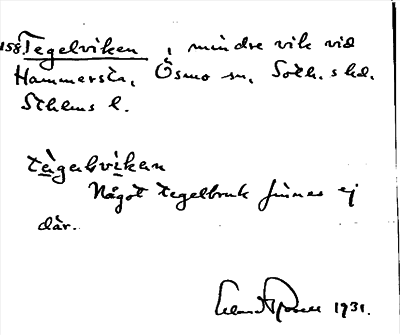 158. Tegelviken, mindre vik vid
Hammersta, Ösmo sn, Soth. shd.
Sthlms l.
tägəlvikən
Något tegelbruk finnes ej
där.
1931.